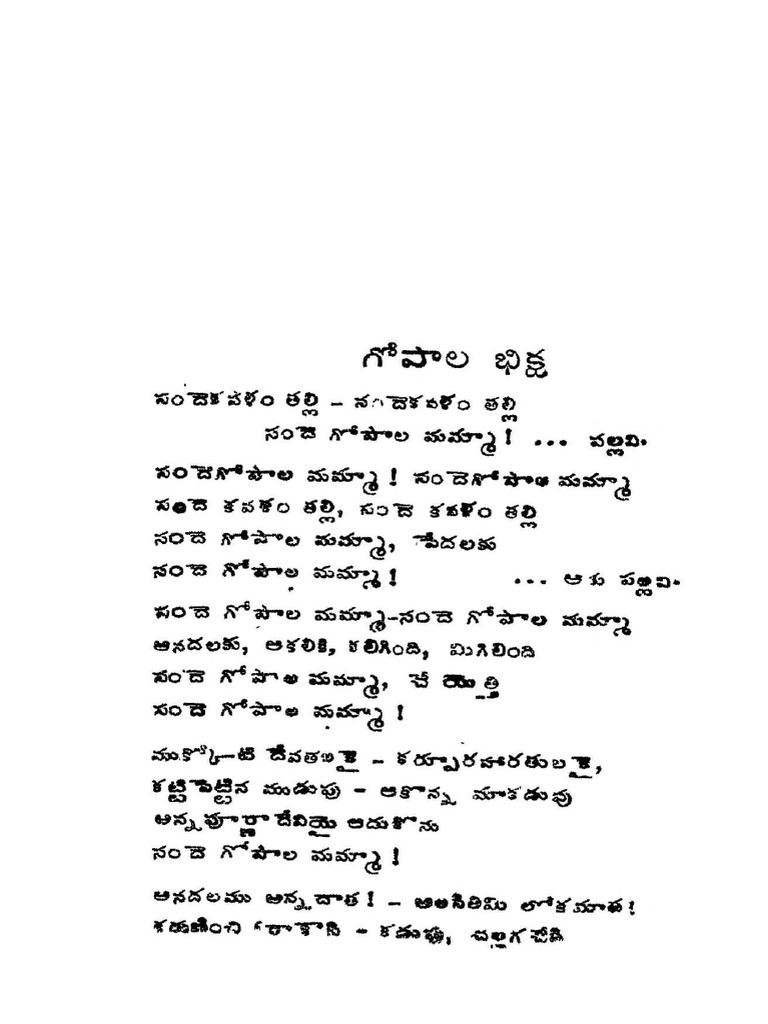 గోపాల భిక్ష
సందెకవళం తల్లి – సందెకవళం తల్లి
సందె గోపాల మమ్మా! ... పల్లవి.
సందెగోపాల మమ్మా! సందెగోపాల మమ్మా
సందె కవళం తల్లి, సందె కవళం తల్లి
సందె గోపాల మమ్మా, పేదలకు
సందె గోపాల మమ్మా! ... అకు పల్లవి.
సందె గోపాల మమ్మా-సందె గోపాల మమ్మా
ఆనదలకు, ఆకలికి, కలిగింది, మిగిలింది
సందె గోపాల మమ్మా, చే యెత్తి
సందె గోపాల మమ్మా!
ముక్కోటి దేవతలకై – కర్పూరహారతులకై,
కట్టిపెట్టిన ముడుపు – ఆకొన్న మాకడుపు
అన్నపూర్ణాదేవియై ఆదుకొను
సందె గోపాల మమ్మా!
ఆనదలము అన్నదాత! – అలసితిమి లోకమాత!
కడుపు, చల్లగ